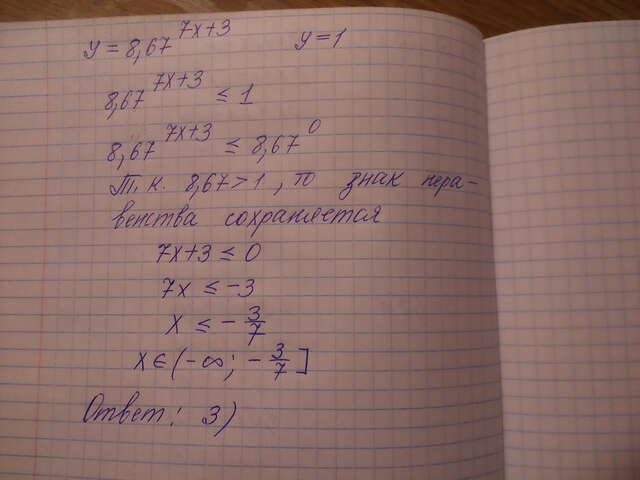 y = 8,67^(7x+3) y = 1
8,67^(7x+3) ≤ 1
8,67^(7x+3) ≤ 8,67^0
Т. к. 8,67 > 1, то знак нера-
венства сохраняется
7x+3 ≤ 0
7x ≤ -3
x ≤ - 3/7
x ∈ (-∞; - 3/7]
Ответ: 3)